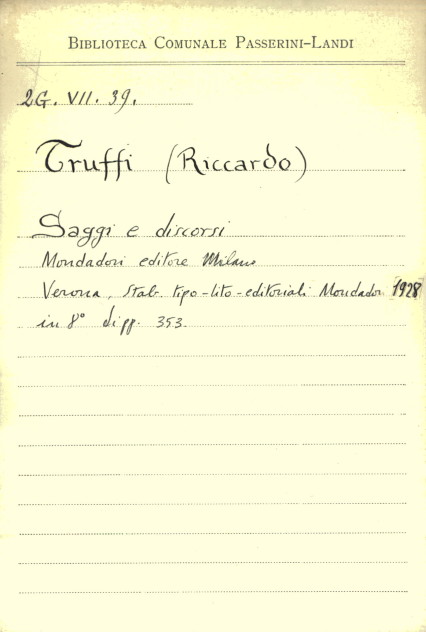 BIBLIOTECA COMUNALE PASSERINI-LANDI
2G. VII. 39.
Truffi (Riccardo)
Saggi e discorsi
Mondadori editore Milano
Verona, Stab. tipo-lito-editoriali Mondadori 1928
in 8° di pp. 353.